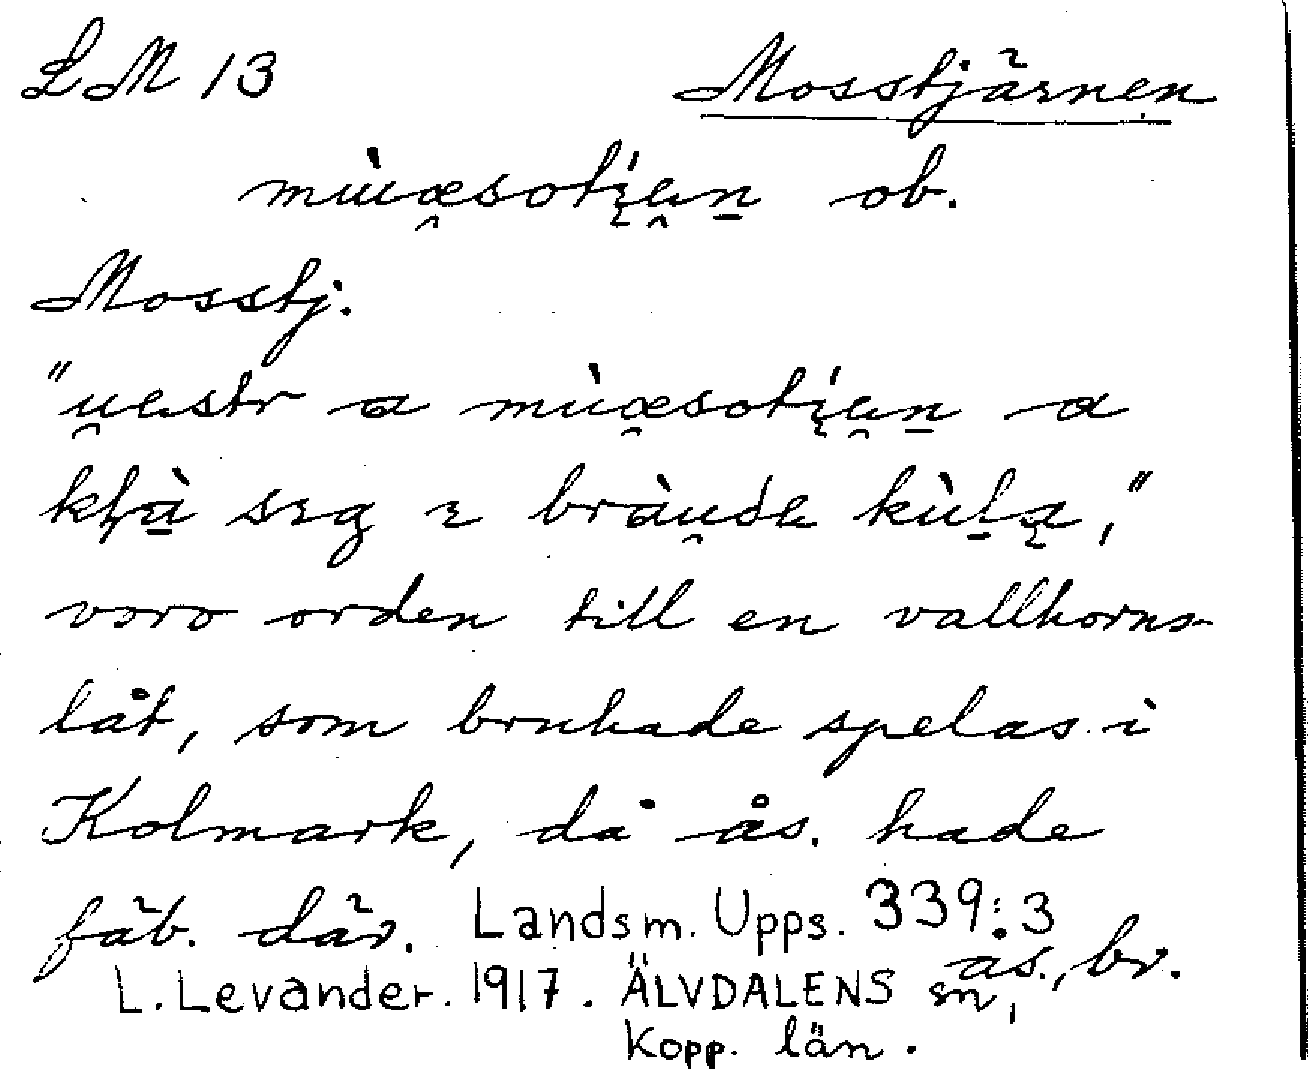 LM 13 Mosstjärnen
mùæ̯sotįe̯n̲ ob.
Mosstj.
"u̯estr a mùæ̯sotįe̯n̲ a
sɩg ɩ bràu̯de
voro orden till en vallhorns-
låt, som brukade spelas i
Kolmark, då ås. hade
fäb. där. Landsm. Upps. 339:3
ås., br.
L. Levander. 1917. ÄLVDALENS sn,
Kopp. län.